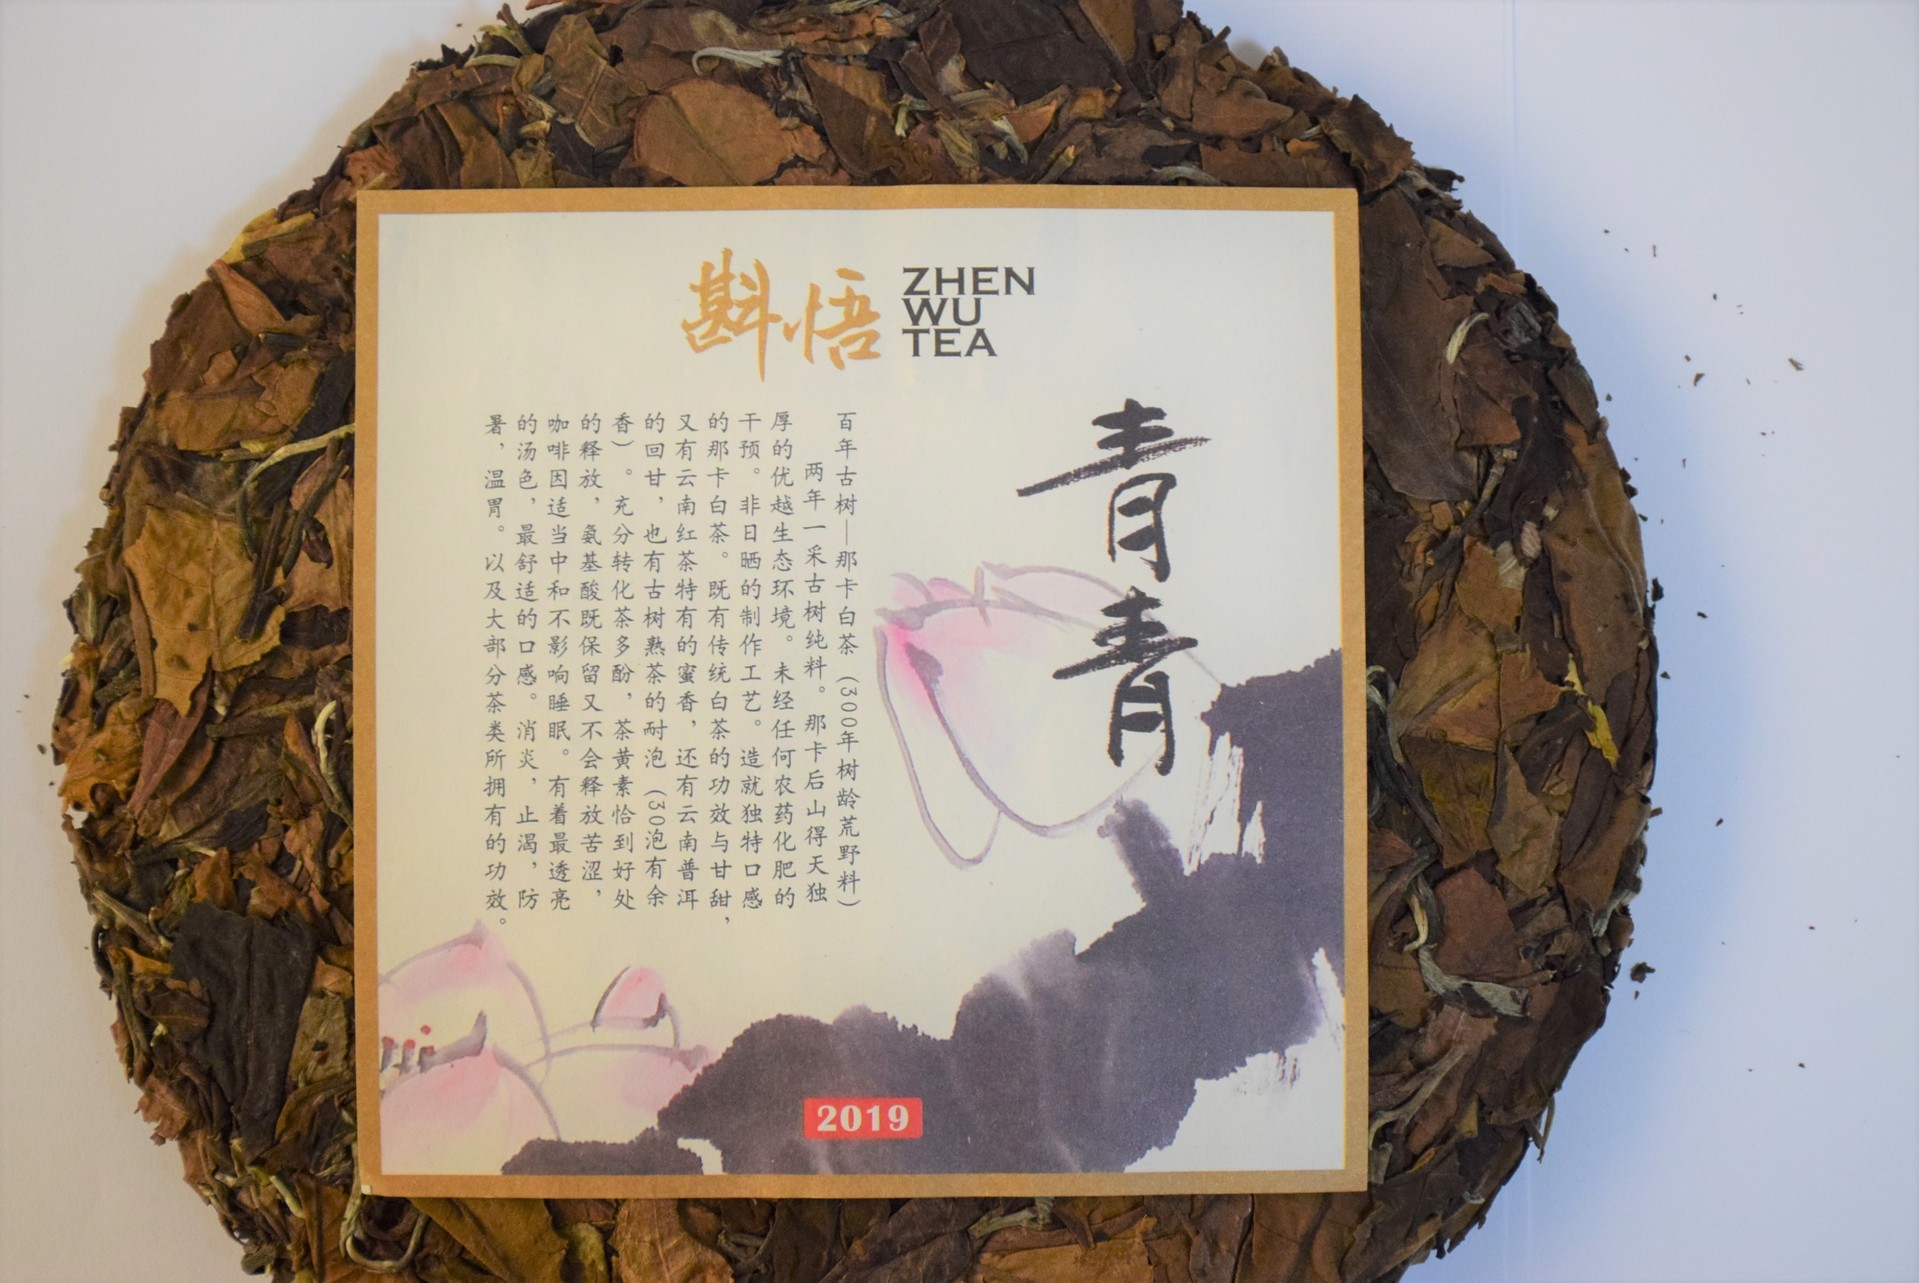 斟悟
ZHEN
WU
TEA
青青
百年古树—那卡白茶(300年树龄荒野料)
两年一采古树纯料。那卡后山得天独
厚的优越生态环境。未经任何农药化肥的
干预。非日晒的制作工艺。造就独特口感
的那卡白茶。既有传统白茶的功效与甘甜，
又有云南红茶特有的蜜香，还有云南普洱
的回甘，也有古树熟茶的耐泡(30泡有余
香)。充分转化茶多酚，茶黄素恰到好处
的释放，氨基酸既保留又不会释放苦涩，
咖啡因适当中和不影响睡眠。有着最透亮
的汤色，最舒适的口感。消炎，止渴，防
暑，温胃。以及大部分茶类所拥有的功效。
2019